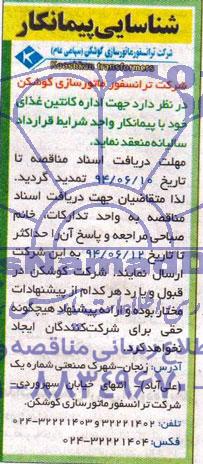 شناسایی پیمانکار
شرکت ترانسفورماتورسازی کوشکن (سهامی عام)
Kooshkan transformers
شرکت ترانسفور ماتورسازی کوشکن
در نظر دارد جهت اداره کانتین غذای
خود با پیمانکار واجد شرایط قرارداد
سالیانه منعقد نماید.
مهلت دریافت اسناد مناقصه تا
تاریخ ۹۴/۰۶/۱۰ تمدید گردید.
لذا متقاضیان جهت دریافت اسناد
مناقصه به واحد تدارکات، خانم
صباحی مراجعه و پاسخ آن را حداکثر
تا تاریخ ۹۴/۰۶/۱۲ به این شرکت
ارسال نمایند. شرکت کوشکن در
قبول و یا رد هر کدام از پیشنهادات
مختار بوده و ارائه پیشنهاد هیچگونه
حقی برای شرکت‌کنندگان ایجاد
نخواهد کرد.
آدرس: زنجان-شهرک صنعتی شماره یک
(علی‌آباد) انتهای خیابان سهروردی-
شرکت ترانسفور ماتورسازی کوشکن
تلفن: ۳۲۲۲۱۴۰۲ و ۳۲۲۲۱۴۰۳-۰۲۴
فکس: ۳۲۲۲۱۴۰۴-۰۲۴